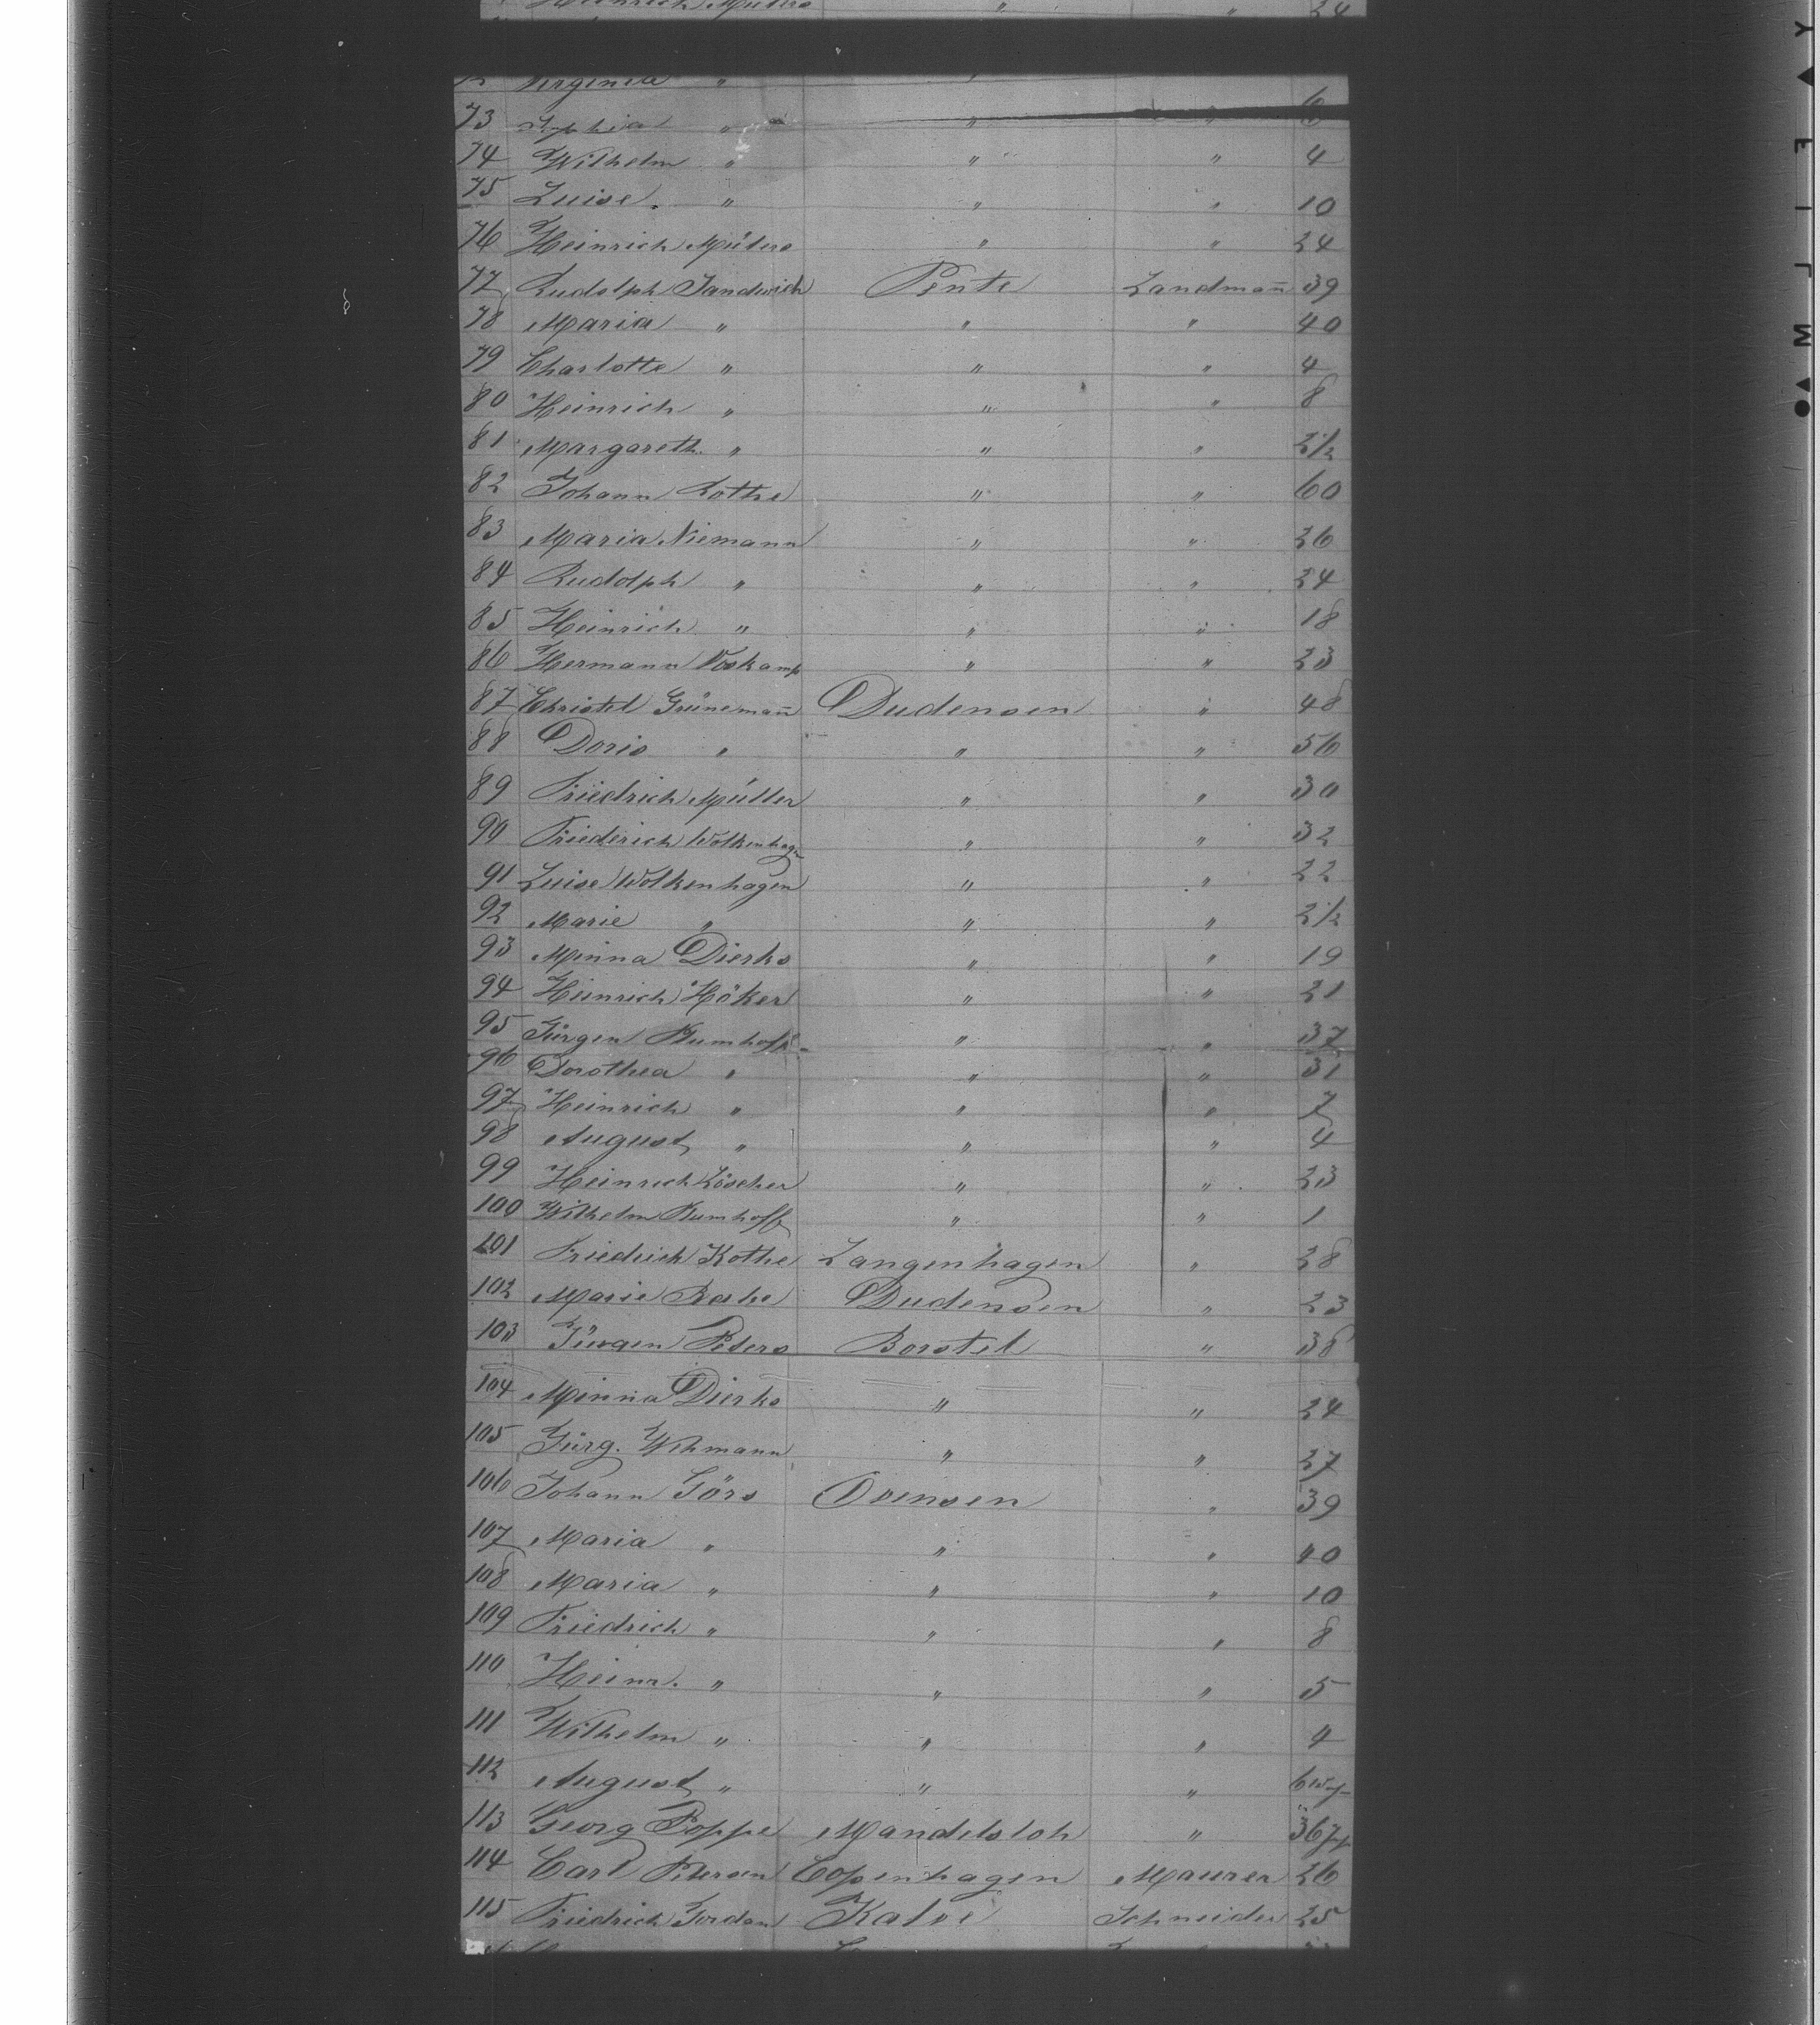 Heinrich Müters " " 24
Virginie " "
73 Sophia " " " 6
74 Wilhelm " " " 4
75 Luise. " " " 10
76 Heinrich Müters " " 24
77 Rudolph Sandwich Pente Landmañ 39
78 Maria " " " 40
79 Charlotte " " " 4
80 Heinrich " " " 8
81 Margareth. " " " 2½
82 Johann Rothe " " 60
83 Maria Niemann " " 26
84 Rudolph " " " 24
85 Heinrich " " " 18
86 Hermann Voskamp " " 23
87 Christel Grünemañ Dudensen " 48
88 Doris " " " 56
89 Friedrich Müller " " 30
90 Friederich Wolkenhagen " " 32
91 Luise Wolkenhagen " " 22
92 Marie " " " 2½
93 Minna Dierks " " 19
94 Heinrich Höker " " 21
95 Jürgen Bumhoff " " 37
96 Dorothea " " " 31
97 Heinrich " " " 7
98 August " " " 4
99 Heinrich Löscher " " 23
100 Wilhelm Bumhoff " " 1
101 Friedrich Kothe Langenhagen " 28
102 Marie Dudensen " 23
103 Jürgen Peters Borstel " 38
104 Minna Dierks " " 24
105 Jürg. Wehmann " " 27
106 Johann Görs " 39
107 Maria " " " 40
108 Maria " " " 10
109 Friedrich " " " 8
110 Heinr. " " " 5
111 Wilhelm " " " 4
112 August " " " 6
113 Georg Poppe Mandelsloh "
114 Carl Petersen Copenhagen Maurer 26
115 Friedrich Jordan Schneider 25